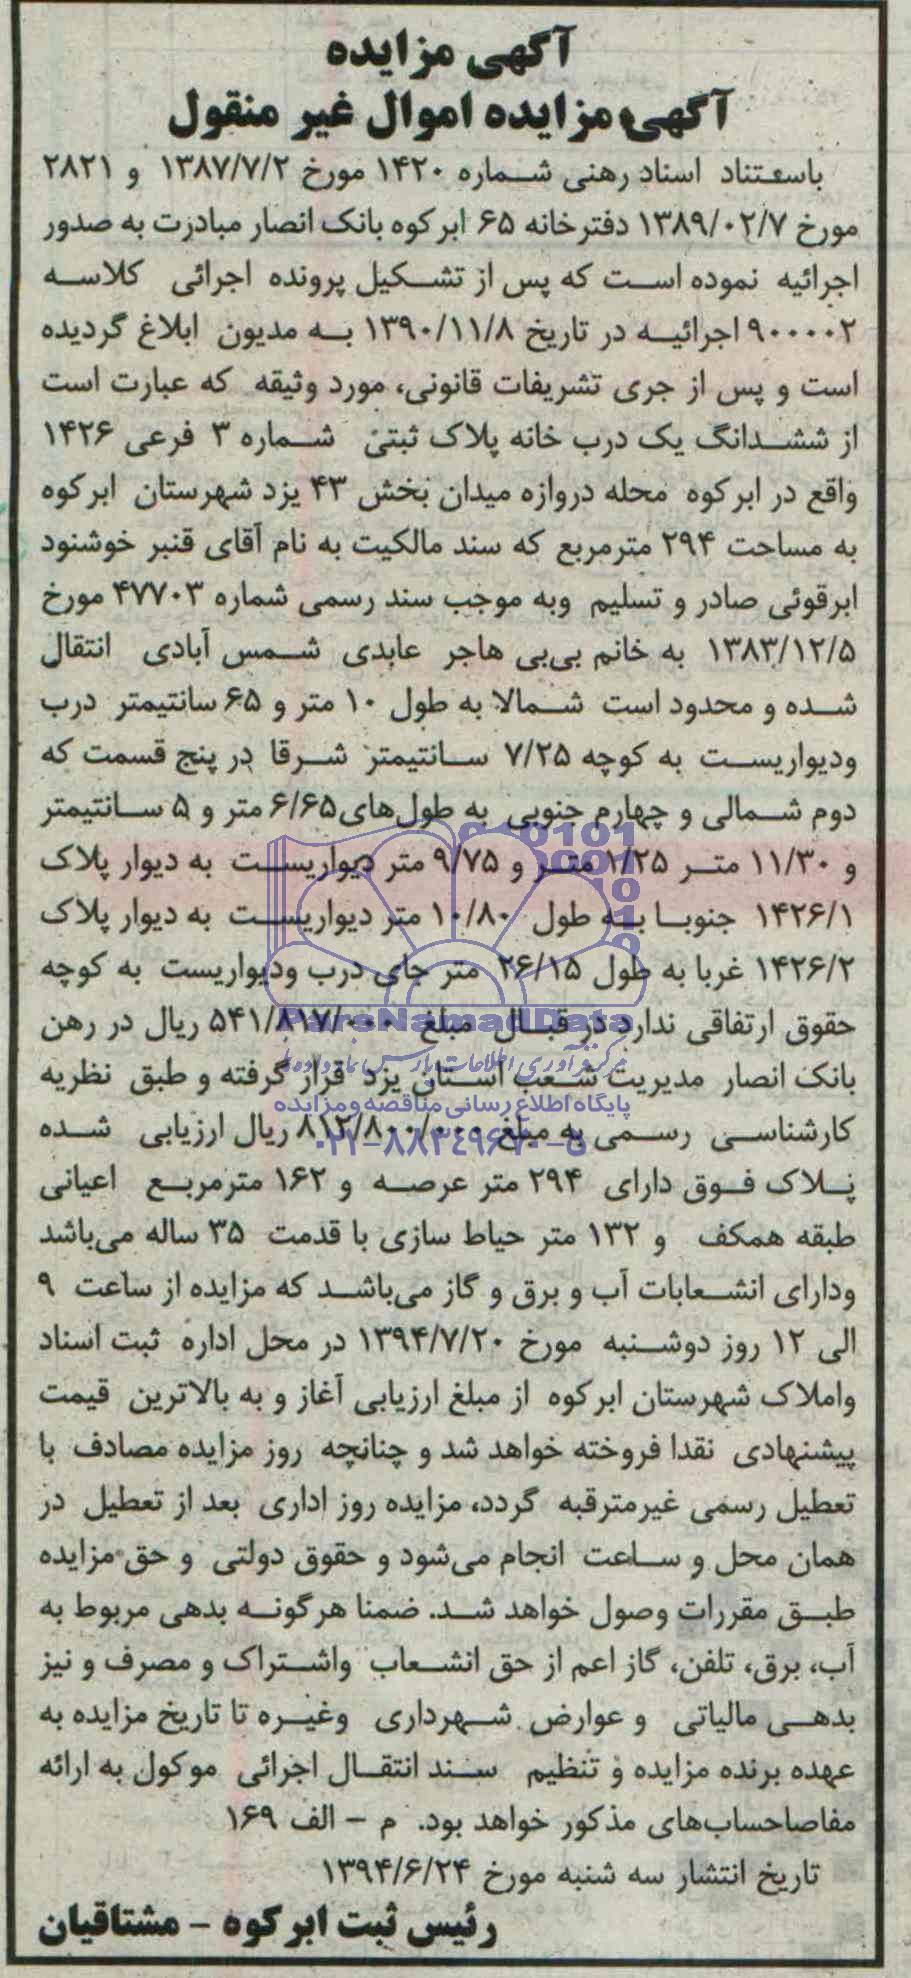 آگهی مزایده
آگهی مزایده اموال غیر منقول
باستناد اسناد رهنی شماره ۱۴۲۰ مورخ ۱۳۸۷/۷/۲ و ۲۸۲۱
مورخ ۱۳۸۹/۰۲/۷ دفترخانه ۶۵ ابرکوه بانک انصار مبادرت به صدور
اجرائیه نموده است که پس از تشکیل پرونده اجرائی کلاسه
۹۰۰۰۰۲ اجرائیه در تاریخ ۱۳۹۰/۱۱/۸ به مدیون ابلاغ گردیده
است و پس از جری تشریفات قانونی، مورد وثیقه که عبارت است
از ششدانگ یک درب خانه پلاک ثبتی شماره ۳ فرعی ۱۴۲۶
واقع در ابرکوه محله دروازه میدان بخش ۴۳ یزد شهرستان ابرکوه
به مساحت ۲۹۴ مترمربع که سند مالکیت به نام آقای قنبر خوشنود
ابرقوئی صادر و تسلیم وبه موجب سند رسمی شماره ۴۷۷۰۳ مورخ
۱۳۸۳/۱۲/۵ به خانم بی‌بی هاجر عابدی شمس آبادی انتقال
شده و محدود است شمالا به طول ۱۰ متر و ۶۵ سانتیمتر درب
ودیواریست به کوچه ۷/۲۵ سانتیمتر شرقا در پنج قسمت که
دوم شمالی و چهارم جنوبی به طول‌های ۶/۶۵ متر و ۵ سانتیمتر
و ۱۱/۳۰ متر ۱/۲۵ متر و ۹/۷۵ متر دیواریست به دیوار پلاک
۱۴۲۶/۱ جنوبا به طول ۱۰/۸۰ متر دیواریست به دیوار پلاک
۱۴۲۶/۲ غربا به طول ۲۶/۱۵ متر جای درب ودیواریست به کوچه
حقوق ارتفاقی ندارد در قبال مبلغ ۵۴۱/۸۱۷/۰۰۰ ریال در رهن
بانک انصار مدیریت شعب استان یزد قرار گرفته و طبق نظریه
کارشناسی رسمی به مبلغ ۸۱۲/۸۰۰/۰۰۰ ریال ارزیابی شده
پلاک فوق دارای ۲۹۴ متر عرصه و ۱۶۲ مترمربع اعیانی
طبقه همکف و ۱۳۲ متر حیاط سازی با قدمت ۳۵ ساله می‌باشد
ودارای انشعابات آب و برق و گاز می‌باشد که مزایده از ساعت ۹
الی ۱۲ روز دوشنبه مورخ ۱۳۹۴/۷/۲۰ در محل اداره ثبت اسناد
واملاک شهرستان ابرکوه از مبلغ ارزیابی آغاز و به بالاترین قیمت
پیشنهادی نقدا فروخته خواهد شد و چنانچه روز مزایده مصادف با
تعطیل رسمی غیرمترقبه گردد، مزایده روز اداری بعد از تعطیل در
همان محل و ساعت انجام می‌شود و حقوق دولتی و حق مزایده
طبق مقررات وصول خواهد شد. ضمنا هرگونه بدهی مربوط به
آب، برق، تلفن، گاز اعم از حق انشعاب واشتراک و مصرف و نیز
بدهی مالیاتی و عوارض شهرداری وغیره تا تاریخ مزایده به
عهده برنده مزایده و تنظیم سند انتقال اجرائی موکول به ارائه
مفاصاحساب‌های مذکور خواهد بود. م – الف ۱۶۹
تاریخ انتشار سه شنبه مورخ ۱۳۹۴/۶/۲۴
رئیس ثبت ابرکوه – مشتاقیان
ParsNamadData
مرکز فرآوری اطلاعات پارس نماد داده‌ها
پایگاه اطلاع رسانی مناقصه و مزایده
۰۲۱-۸۸۳۴۹۶۷۰-۵